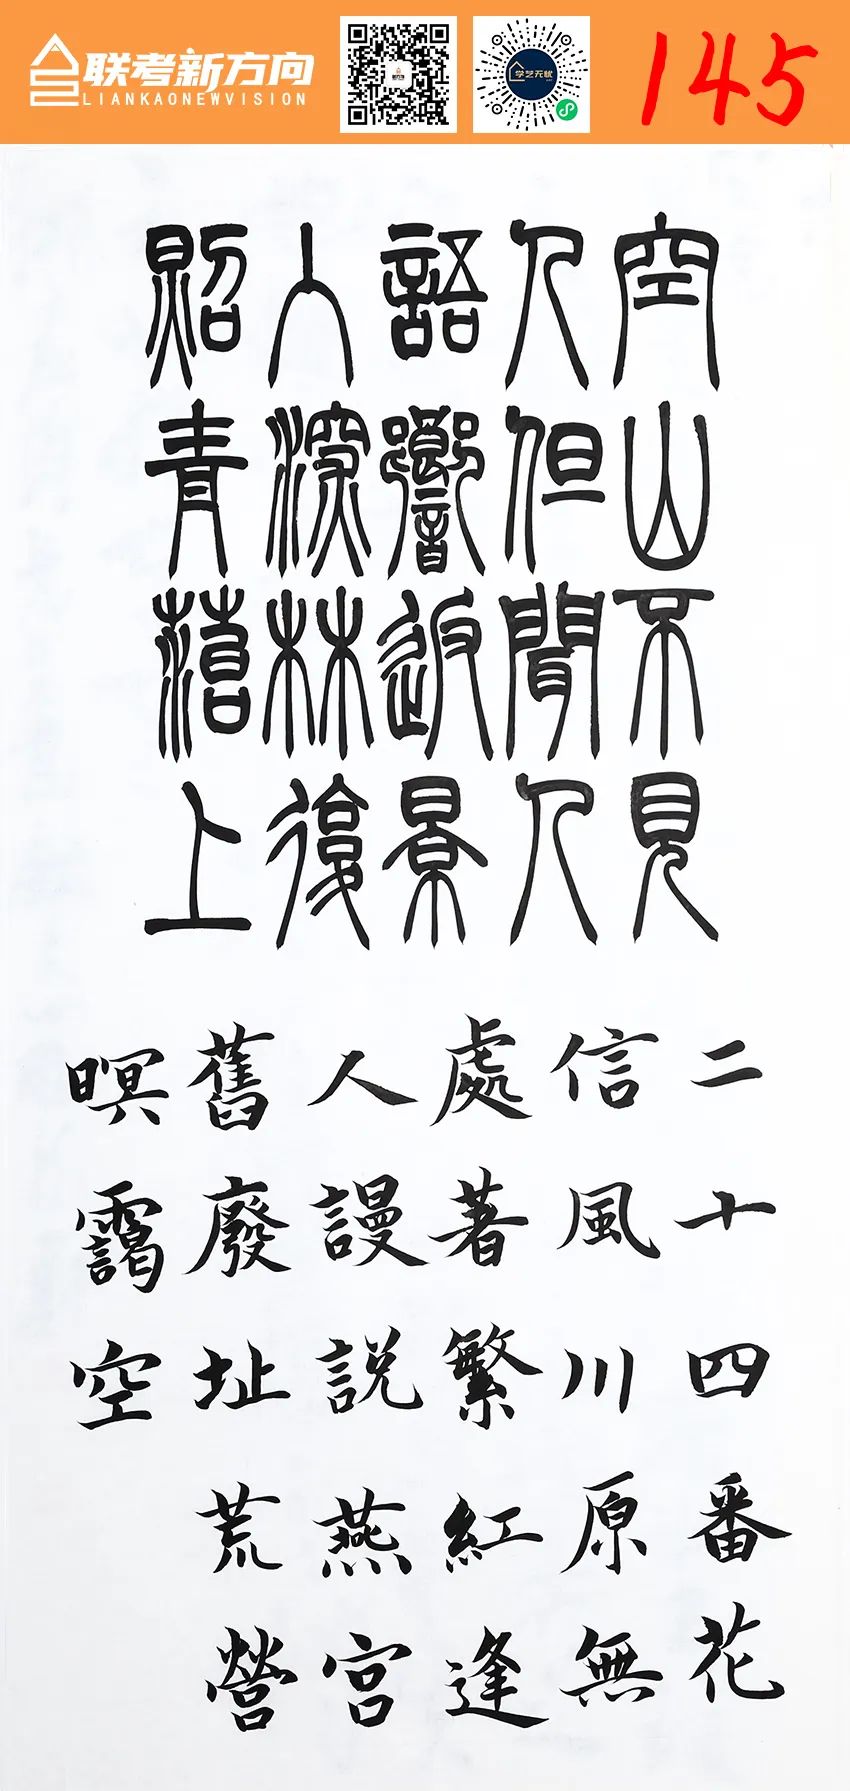 联考新方向
LIANKAONEWVISION
学艺无忧
145
空山不見
人但聞人
語響返景
入深林復
照青菭上
二十四番花
信風川原無
處著繁紅逢
人謾説燕宫
舊廢址荒營
暝靄空